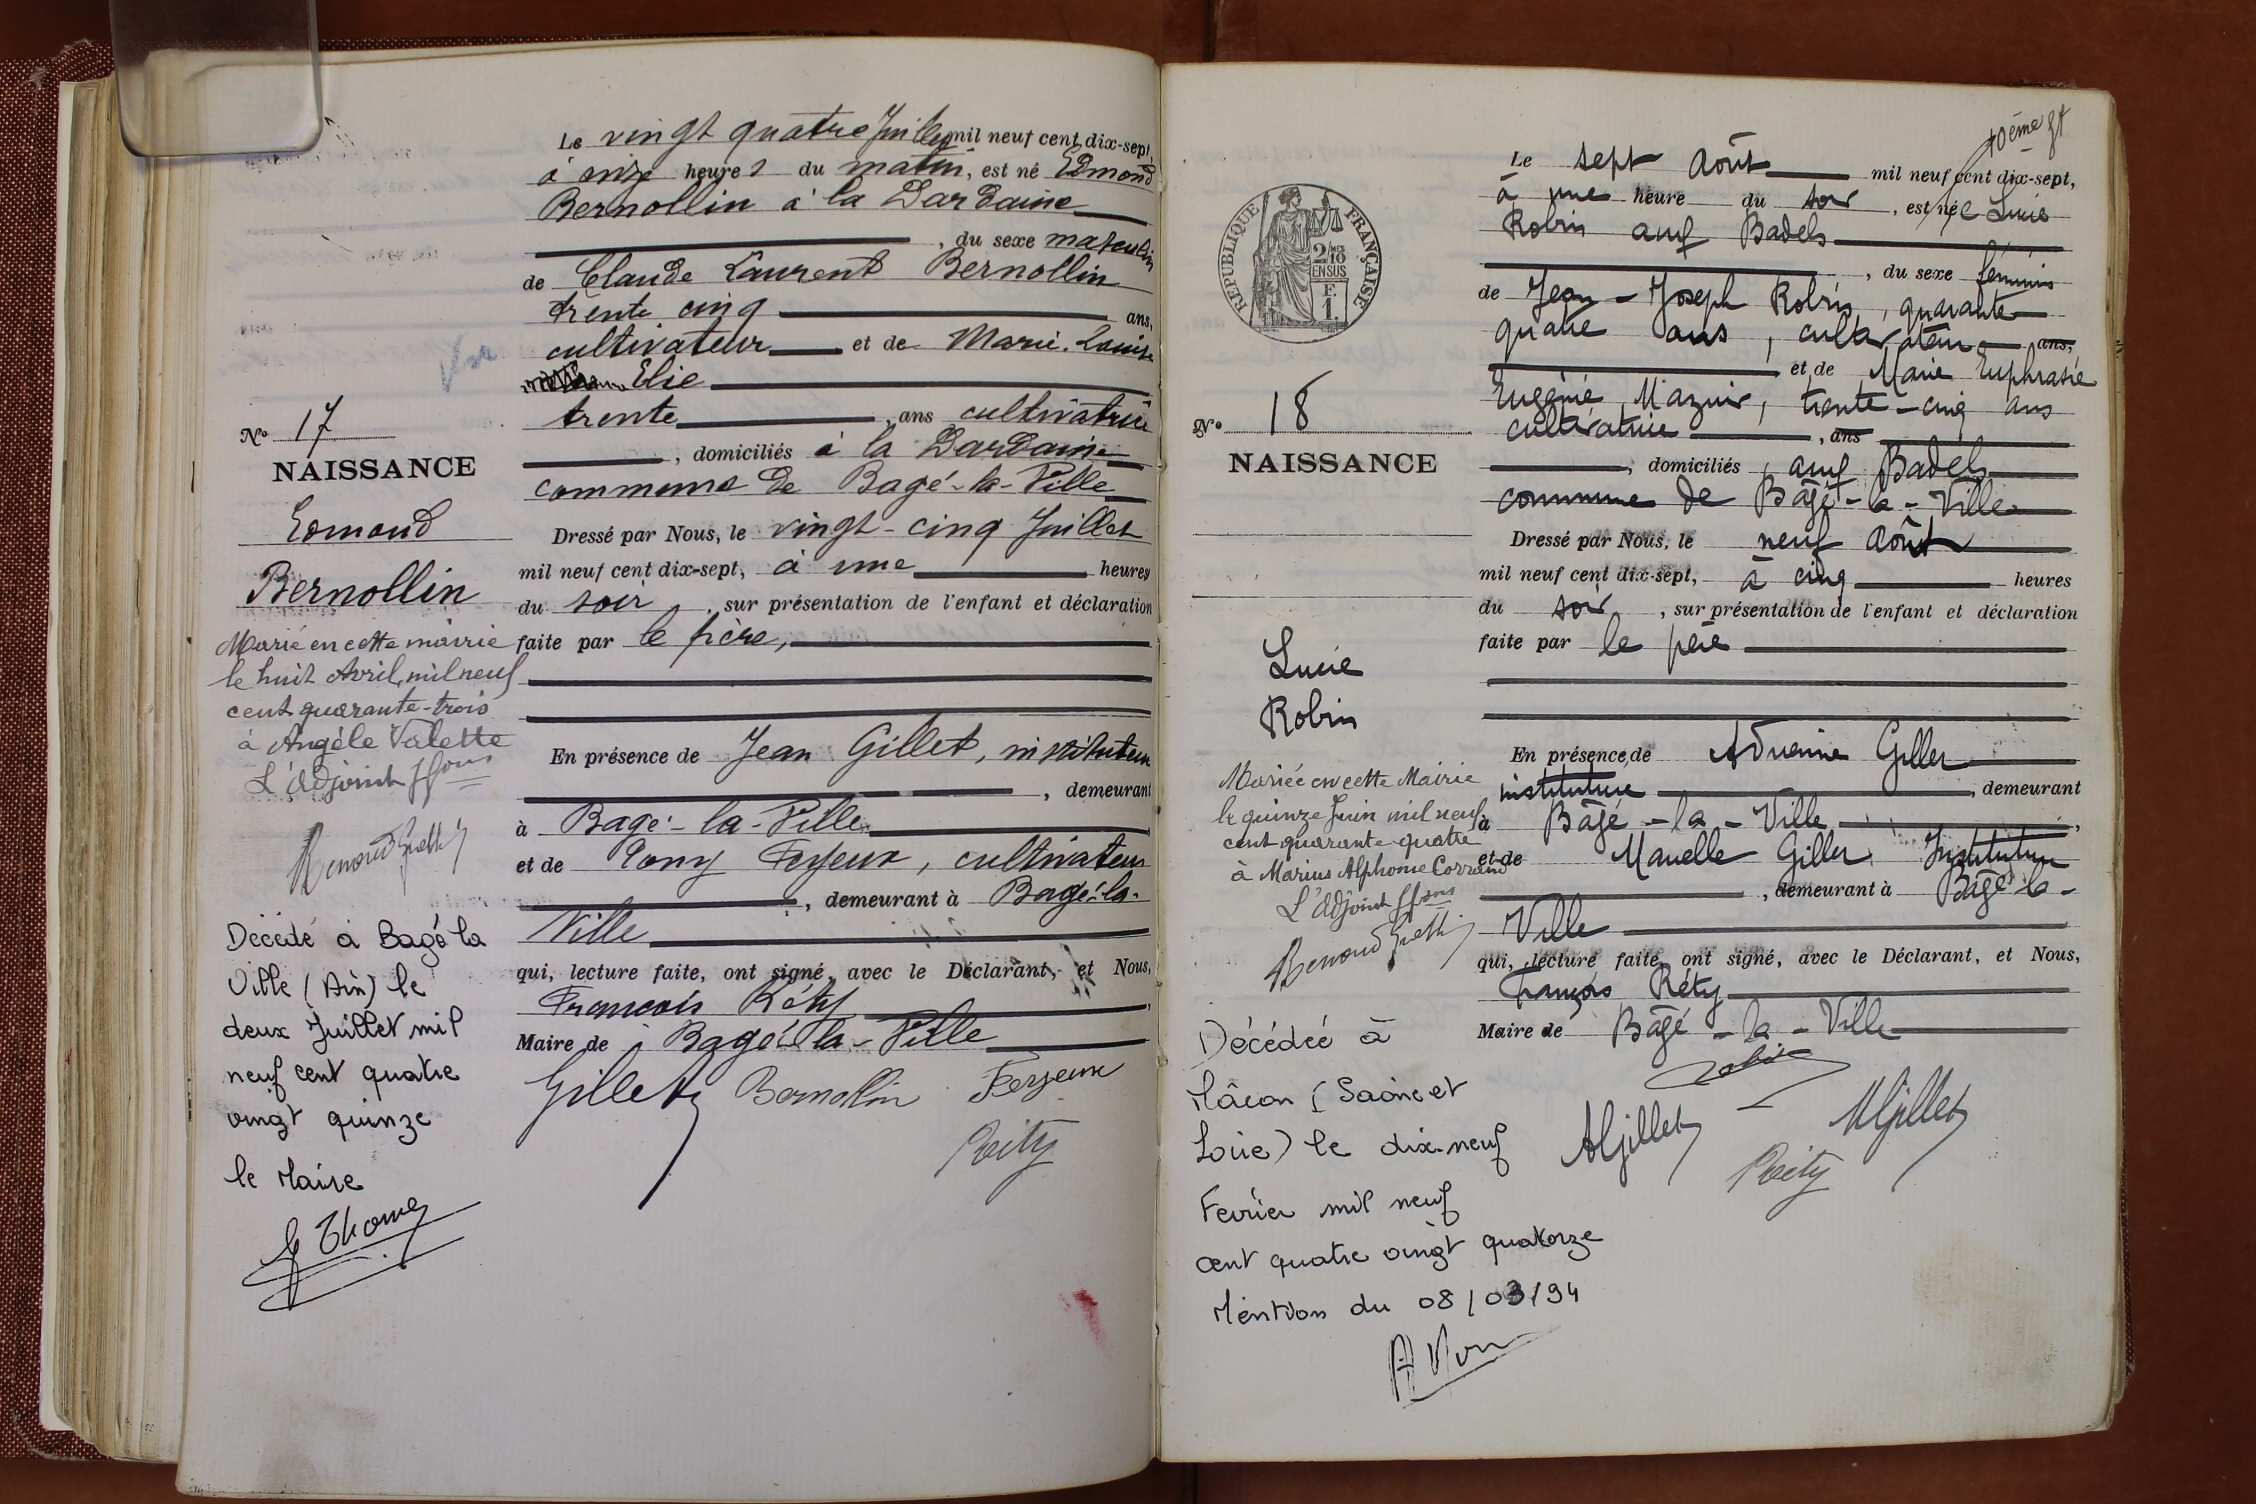 Le vingt quatre Juillet mil neuf cent dix-sept,
à onze heures du matin, est né Edmond
Bernollin à la Dardaine
, du sexe masculin
de Claude Laurent Bernollin
trente cinq ans,
cultivateur et de Marie-Louise
Elie
trente ans cultivatrice
, domiciliés à la Dardaine
commune de Bagé-la-Ville
Dressé par Nous, le vingt-cinq Juillet
mil neuf cent dix-sept, à une heures
du soir, sur présentation de l'enfant et déclaration
faite par le père,
En présence de Jean Gillet, instituteur
, demeurant
à Bagé-la-Ville
et de Tony Feyeux, cultivateur
, demeurant à Bagé-la-
Ville
qui, lecture faite, ont signé, avec le Déclarant, et Nous,
François Réty
Maire de Bagé-la-Ville
Gillet Bernollin Feyeux
Réty
No 17
NAISSANCE
Edmond
Bernollin
Marié en cette mairie
le huit Avril mil neuf
cent quarante-trois
à Angèle Valette
L'adjoint ff ons
Décédé à Bagé la
Ville (Ain) le
deux Juillet mil
neuf cent quatre
vingt quinze
le Maire
Thomas
10ème
Le sept Août mil neuf cent dix-sept,
à une heure du soir, est née Lucie
Robin auf Badels
, du sexe féminin
de Jean-Joseph Robin, quarante
quatre ans, cultivateur ans,
et de Marie Euphrasie
Eugénie Mazuir, trente-cinq ans
cultivatrice, ans
, domiciliés auf Badels
commune de Bâgé-la-Ville
Dressé par Nous, le neuf Août
mil neuf cent dix-sept, à cinq heures
du soir, sur présentation de l'enfant et déclaration
faite par le père
En présence de Adrienne Gillet
institutrice, demeurant
à Bâgé-la-Ville,
et de Marcelle Gillet Institutrice
, demeurant à Bâgé-la-
Ville
qui, lecture faite, ont signé, avec le Déclarant, et Nous,
François Réty
Maire de Bâgé-la-Ville
Robin
AGillet MGillet
Réty
RÉPUBLIQUE FRANÇAISE
2/10
EN SUS
F.
1.
No 18
NAISSANCE
Lucie
Robin
Mariée en cette Mairie
le quinze Juin mil neuf
cent quarante-quatre
à Marius Alphonse
L'adjoint ff ons
Décédée à
Mâcon (Saône et
Loire) le dix-neuf
Fevrier mil neuf
cent quatre vingt quatorze
Mention du 08/03/94